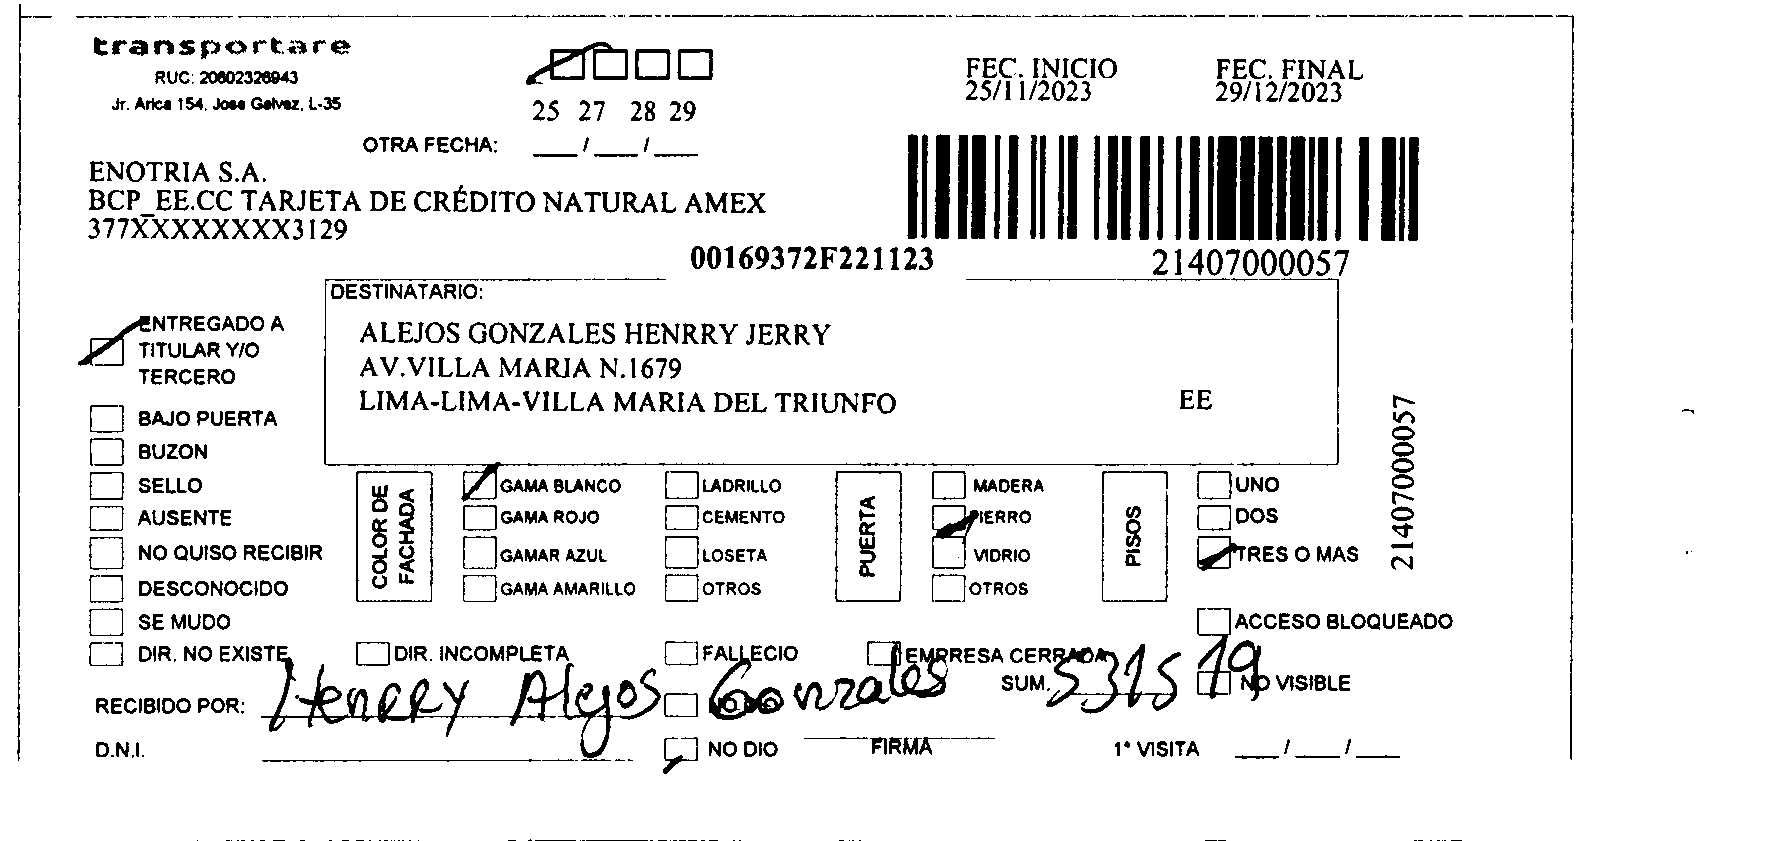 transportare
RUC: 20602326943
Jr. Arica 154, Jose Galvez, L-35
25 27 28 29
OTRA FECHA: ___/___/___
FEC. INICIO
25/11/2023
FEC. FINAL
29/12/2023
ENOTRIA S.A.
BCP_EE.CC TARJETA DE CRÉDITO NATURAL AMEX
377XXXXXXXX3129
00169372F221123
21407000057
DESTINATARIO:
ALEJOS GONZALES HENRRY JERRY
AV.VILLA MARIA N.1679
LIMA-LIMA-VILLA MARIA DEL TRIUNFO EE
21407000057
ENTREGADO A
TITULAR Y/O
TERCERO
BAJO PUERTA
BUZON
SELLO
AUSENTE
NO QUISO RECIBIR
DESCONOCIDO
SE MUDO
DIR. NO EXISTE
COLOR DE
FACHADA
GAMA BLANCO
GAMA ROJO
GAMAR AZUL
GAMA AMARILLO
LADRILLO
CEMENTO
LOSETA
OTROS
PUERTA
MADERA
FIERRO
VIDRIO
OTROS
PISOS
UNO
DOS
TRES O MAS
ACCESO BLOQUEADO
DIR. INCOMPLETA
FALLECIO
EMPRESA CERRADA
SUM. 531519
NO VISIBLE
RECIBIDO POR: Henrry Alejos Gonzales
D.N.I.
NO DIO
FIRMA
1ª VISITA ___/___/___